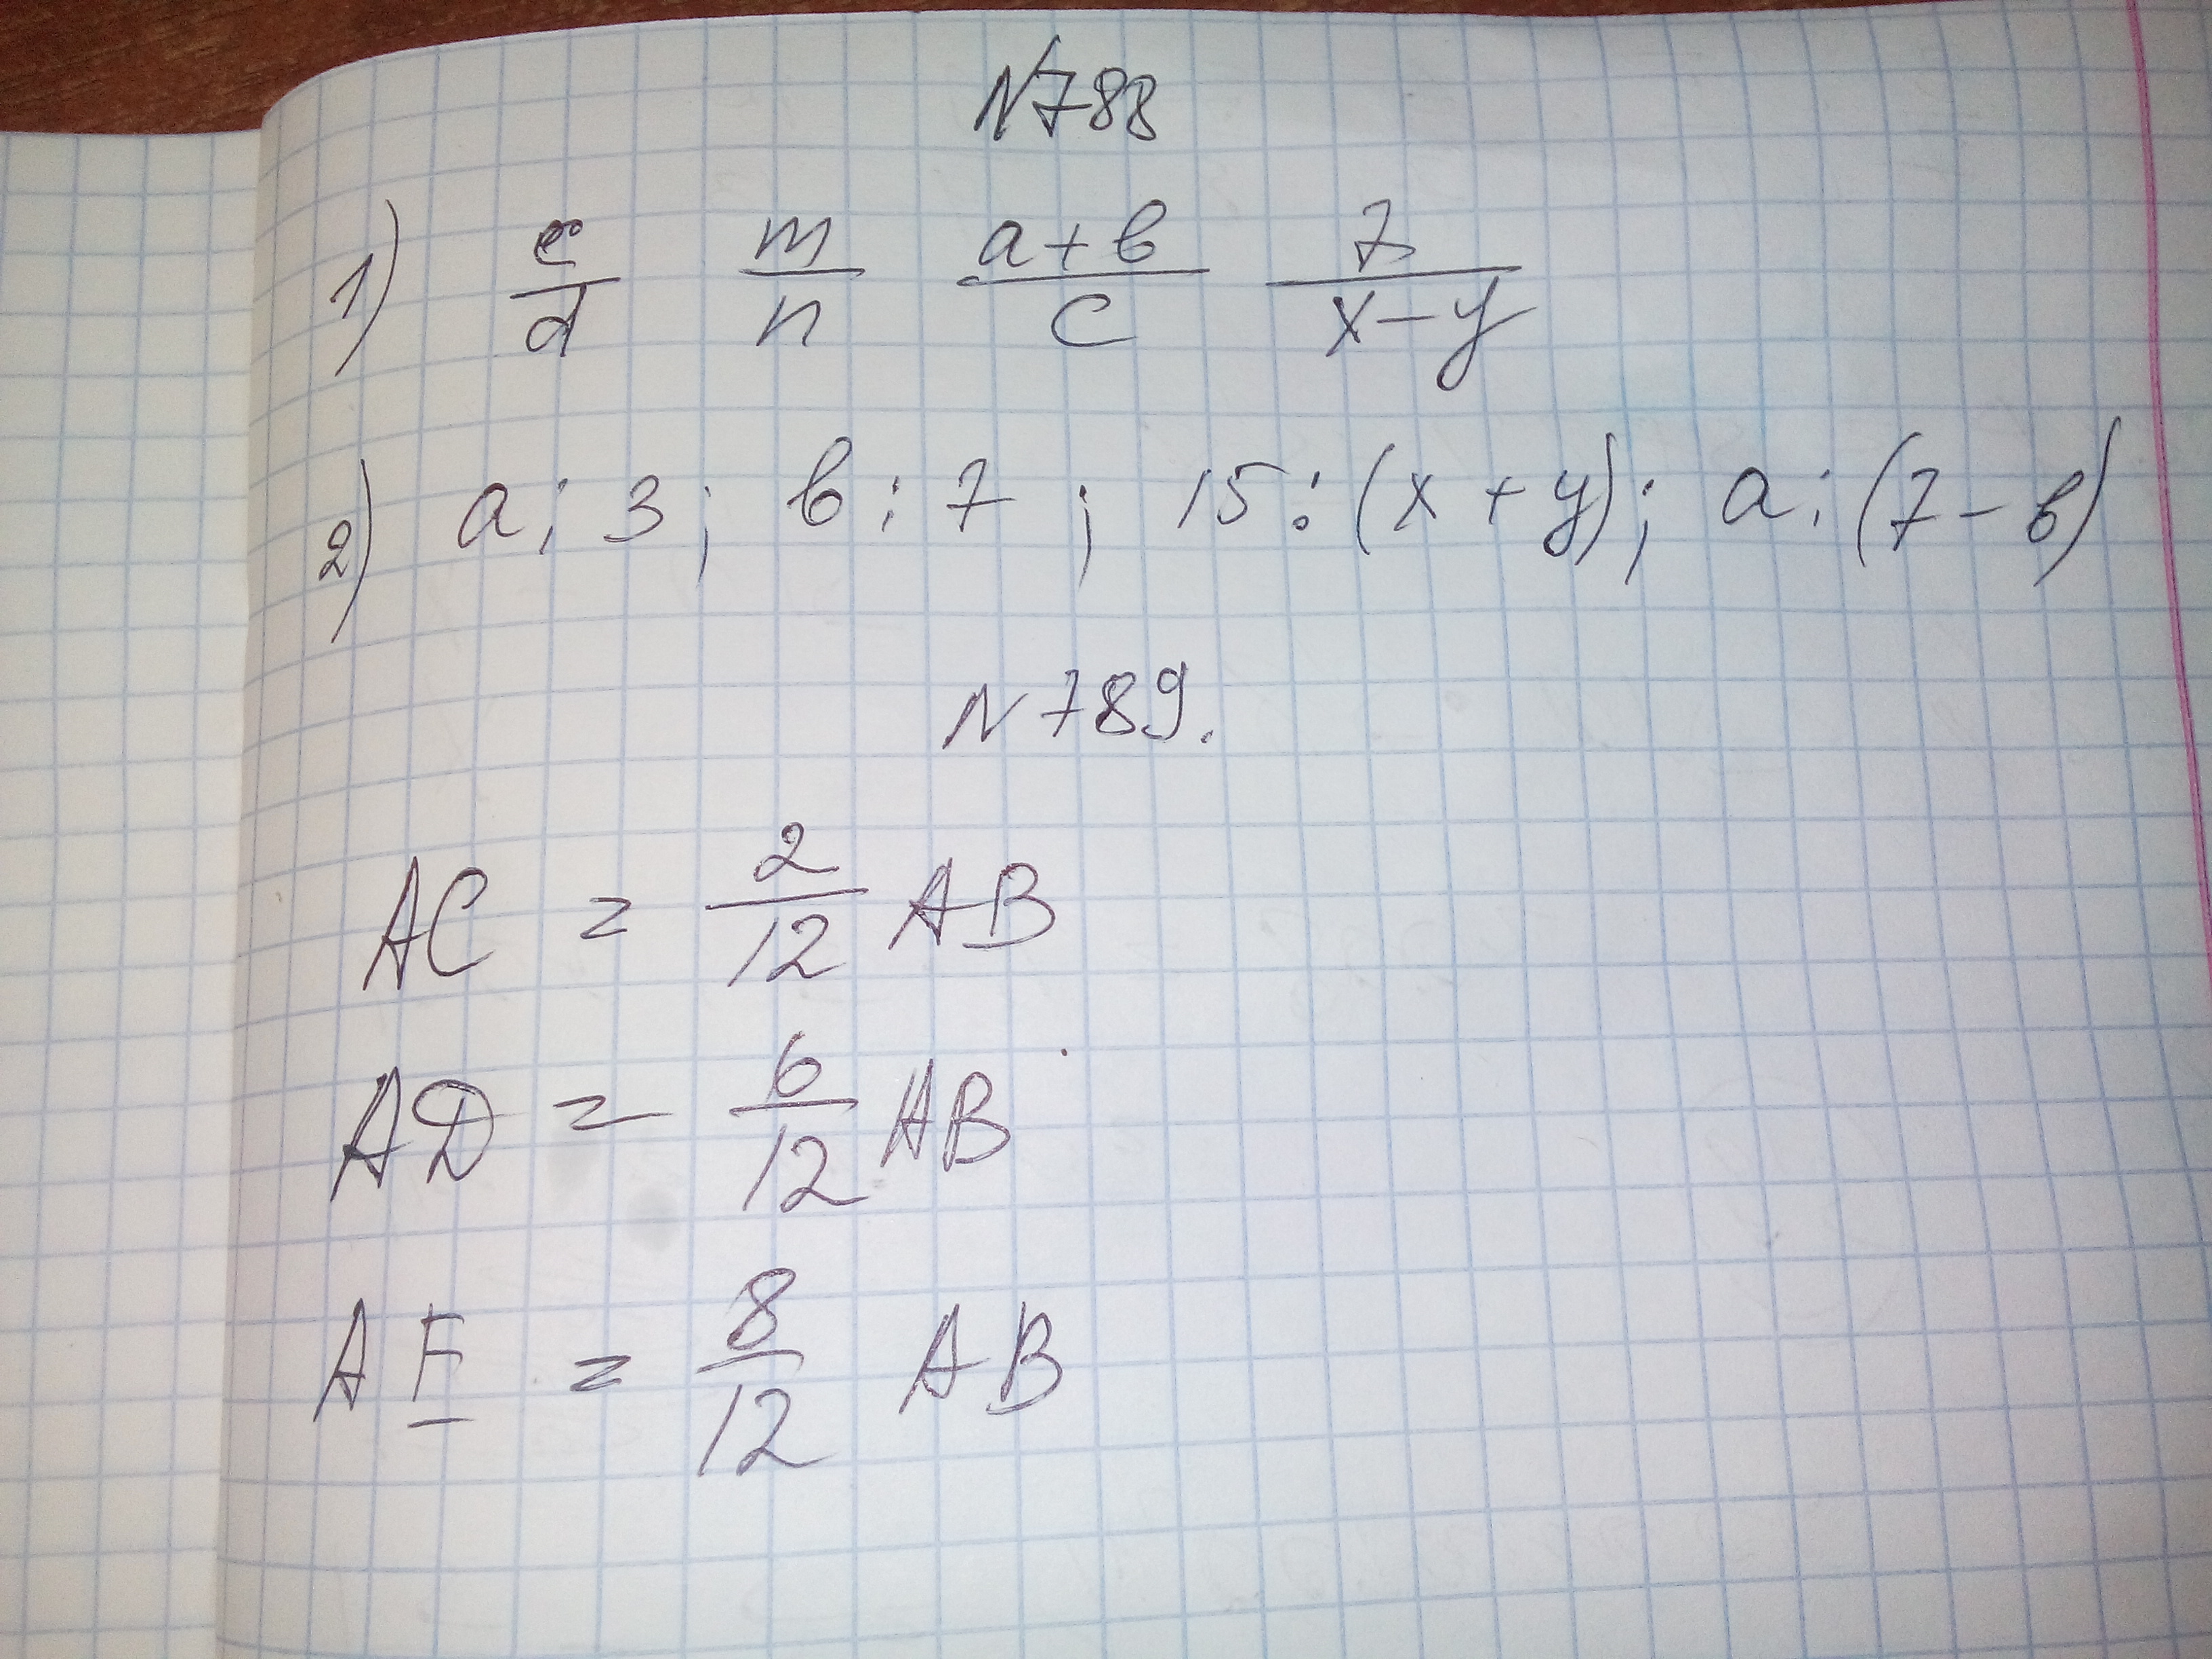 N788
1) c/d m/n a+b/c 7/x-y
2) a : 3 ; b : 7 ; 15 : (x + y) ; a : (7 - b)
N 789.
AC = 2/12 AB
AD = 6/12 AB
AE = 8/12 AB